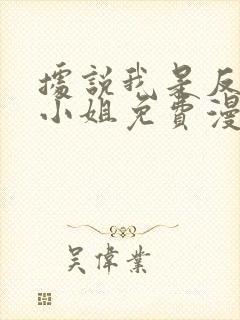 據說我是反
小姐免費漫
吳偉業